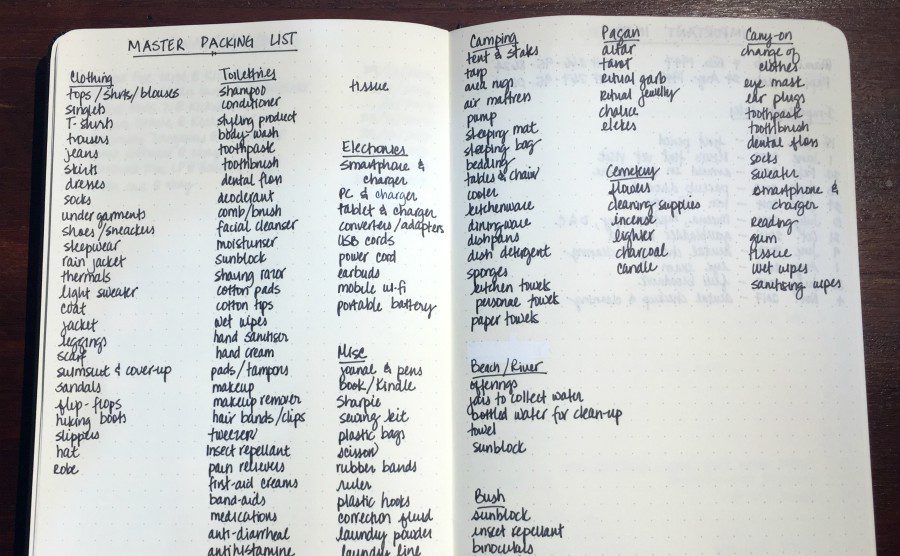 MASTER PACKING LIST
Clothing
tops/shirts/blouses
singlets
T-shirts
trousers
jeans
skirts
dresses
socks
undergarments
shoes/sneakers
sleepwear
rain jacket
thermals
light sweater
coat
jacket
leggings
scarf
swimsuit & cover-up
sandals
flip-flops
hiking boots
slippers
hat
robe
Toiletries
shampoo
conditioner
styling product
body-wash
toothpaste
toothbrush
dental floss
deodorant
comb/brush
facial cleanser
moisturiser
sunblock
shaving razor
cotton pads
cotton tips
wet wipes
hand sanitiser
hand cream
pads/tampons
makeup
makeup remover
hair bands/clips
tweezers
insect repellant
pain relievers
first-aid creams
band-aids
medications
anti-diarrheal
antihistamine
tissue
Electronics
smartphone &
charger
PC & charger
tablet & charger
converters/adapters
USB cords
power cord
earbuds
mobile wi-fi
portable battery
Misc
journal & pens
book/Kindle
Sharpie
sewing kit
plastic bags
scissors
rubber bands
ruler
plastic hooks
correction fluid
laundry powder
laundry line
Camping
tent & stakes
tarp
area rugs
air mattress
pump
sleeping mat
sleeping bag
bedding
tables & chairs
cooler
kitchenware
diningware
dishpans
dish detergent
sponges
kitchen towels
personal towels
paper towels
Beach/River
offerings
jars to collect water
bottled water for clean-up
towel
sunblock
Bush
sunblock
insect repellant
binoculars
Pagan
altar
tarot
ritual garb
ritual jewellery
chalice
elekes
Cemetery
flowers
cleaning supplies
incense
lighter
charcoal
candle
Carry-on
change of
clothes
eye mask
ear plugs
toothpaste
toothbrush
dental floss
socks
sweater
smartphone &
charger
reading
gum
tissue
wet wipes
sanitising wipes